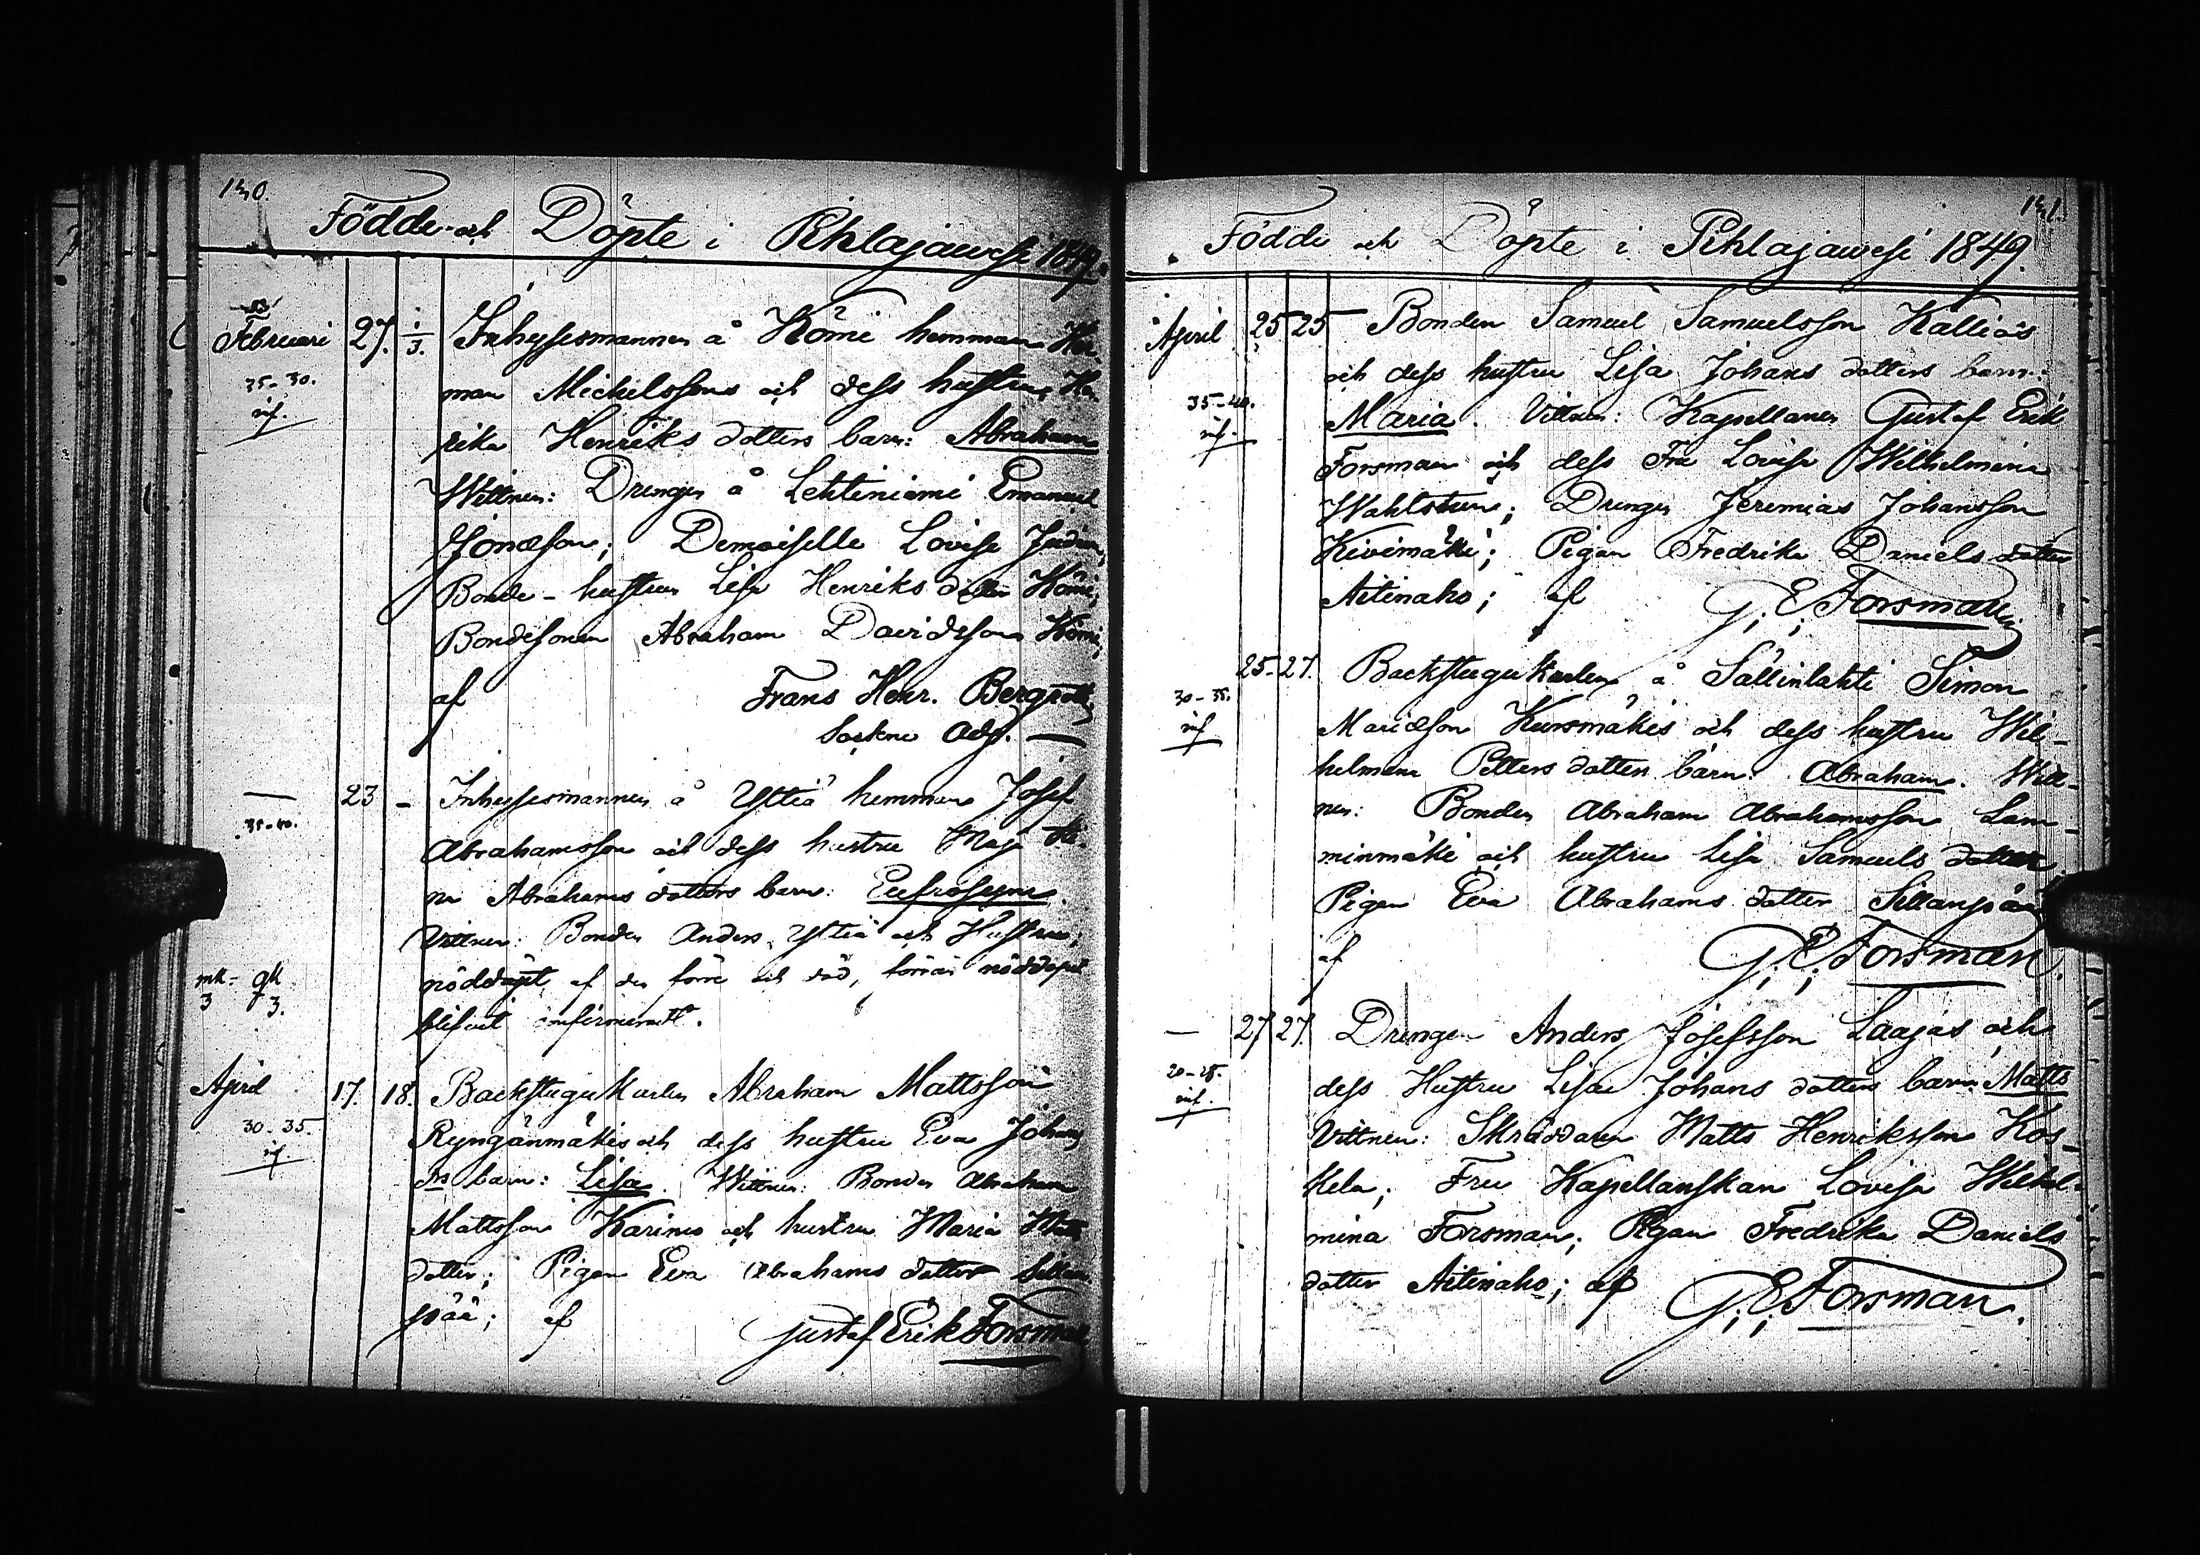 140.
Födde och Döpte i Pihlajawesi 1849.
Februari 27. 1/3. Inhysesmannen å Kömi hemman Her-
35-30. man Mickelssons och dess hustru He-
inf. rika Henriks dotters barn: Abraham
Wittnen: Drengen å Lehtiniemi Emanuel
Jonæson; Demoiselle Lovisa Judin,
Bonde-hustrun Lisa Henriks dotter Kömi,
Bondesonen Abraham Davidsson Kömi,
af Frans Henr. Bergroth
Sockne Adj.
— 23 - Inhysesmannen å Yltiä hemman Josef
35-40. Abrahamsson och dess hustru Maja
Abrahams dotters barn: Eufrosyne.
Vittnen: Bonden Anders Yltiä och Hustrun;
mk- gk nöddöpt af den förre och död, förrän nöddopet
3 3. blifvit confirmeradt.
April 17. 18. Backstugukarlen Abraham Mattsson
30-35. Ryngänmäkis och dess hustru Eva Johans
inf drs barn: Lisa. Wittnen: Bonden Abraham
Mattsson Karimo och hustru Maria Matts
dotter; Pigan Eva Abrahams dotter Sillan-
pää; af Gustaf Erik Forsman
141.
Födde och Döpte i Pihlajawesi 1849.
April 25 25 Bonden Samuel Samuelsson Kallios
och dess hustru Lisa Johans dotters barn:
35-40. Maria. Vittnen: Kapellanen Gustaf Erik
inf. Forsman och dess Fru Lovisa Wilhelmina
Wahlstren; Drengen Jeremias Johansson
Kivimäki; Pigan Fredrika Daniels dotter
Aitinaho; af G. E. Forsman
25-27. Backstugukarlen å Sällinlahti Simon
30-35. Mariæson Kursmäkis och dess hustru Wil-
inf helmina Petters dotters barn: Abraham. Witt-
nen: Bonden Abraham Abrahamsson Lam-
minmäki och hustru Lisa Samuels dotter
Pigan Eva Abrahams dotter Sillanpää
af G. E. Forsman.
— 27 27. Drengen Anders Josefsson Laajas och
20-25. dess Hustru Lisa Johans dotters barn: Matts
inf. Vittnen: Skräddaren Matts Henriksson Kos-
kela; Fru Kapellanskan Lovisa Wilhel-
mina Forsman; Pigan Fredrika Daniels
dotter Aitinaho; af G. E. Forsman.